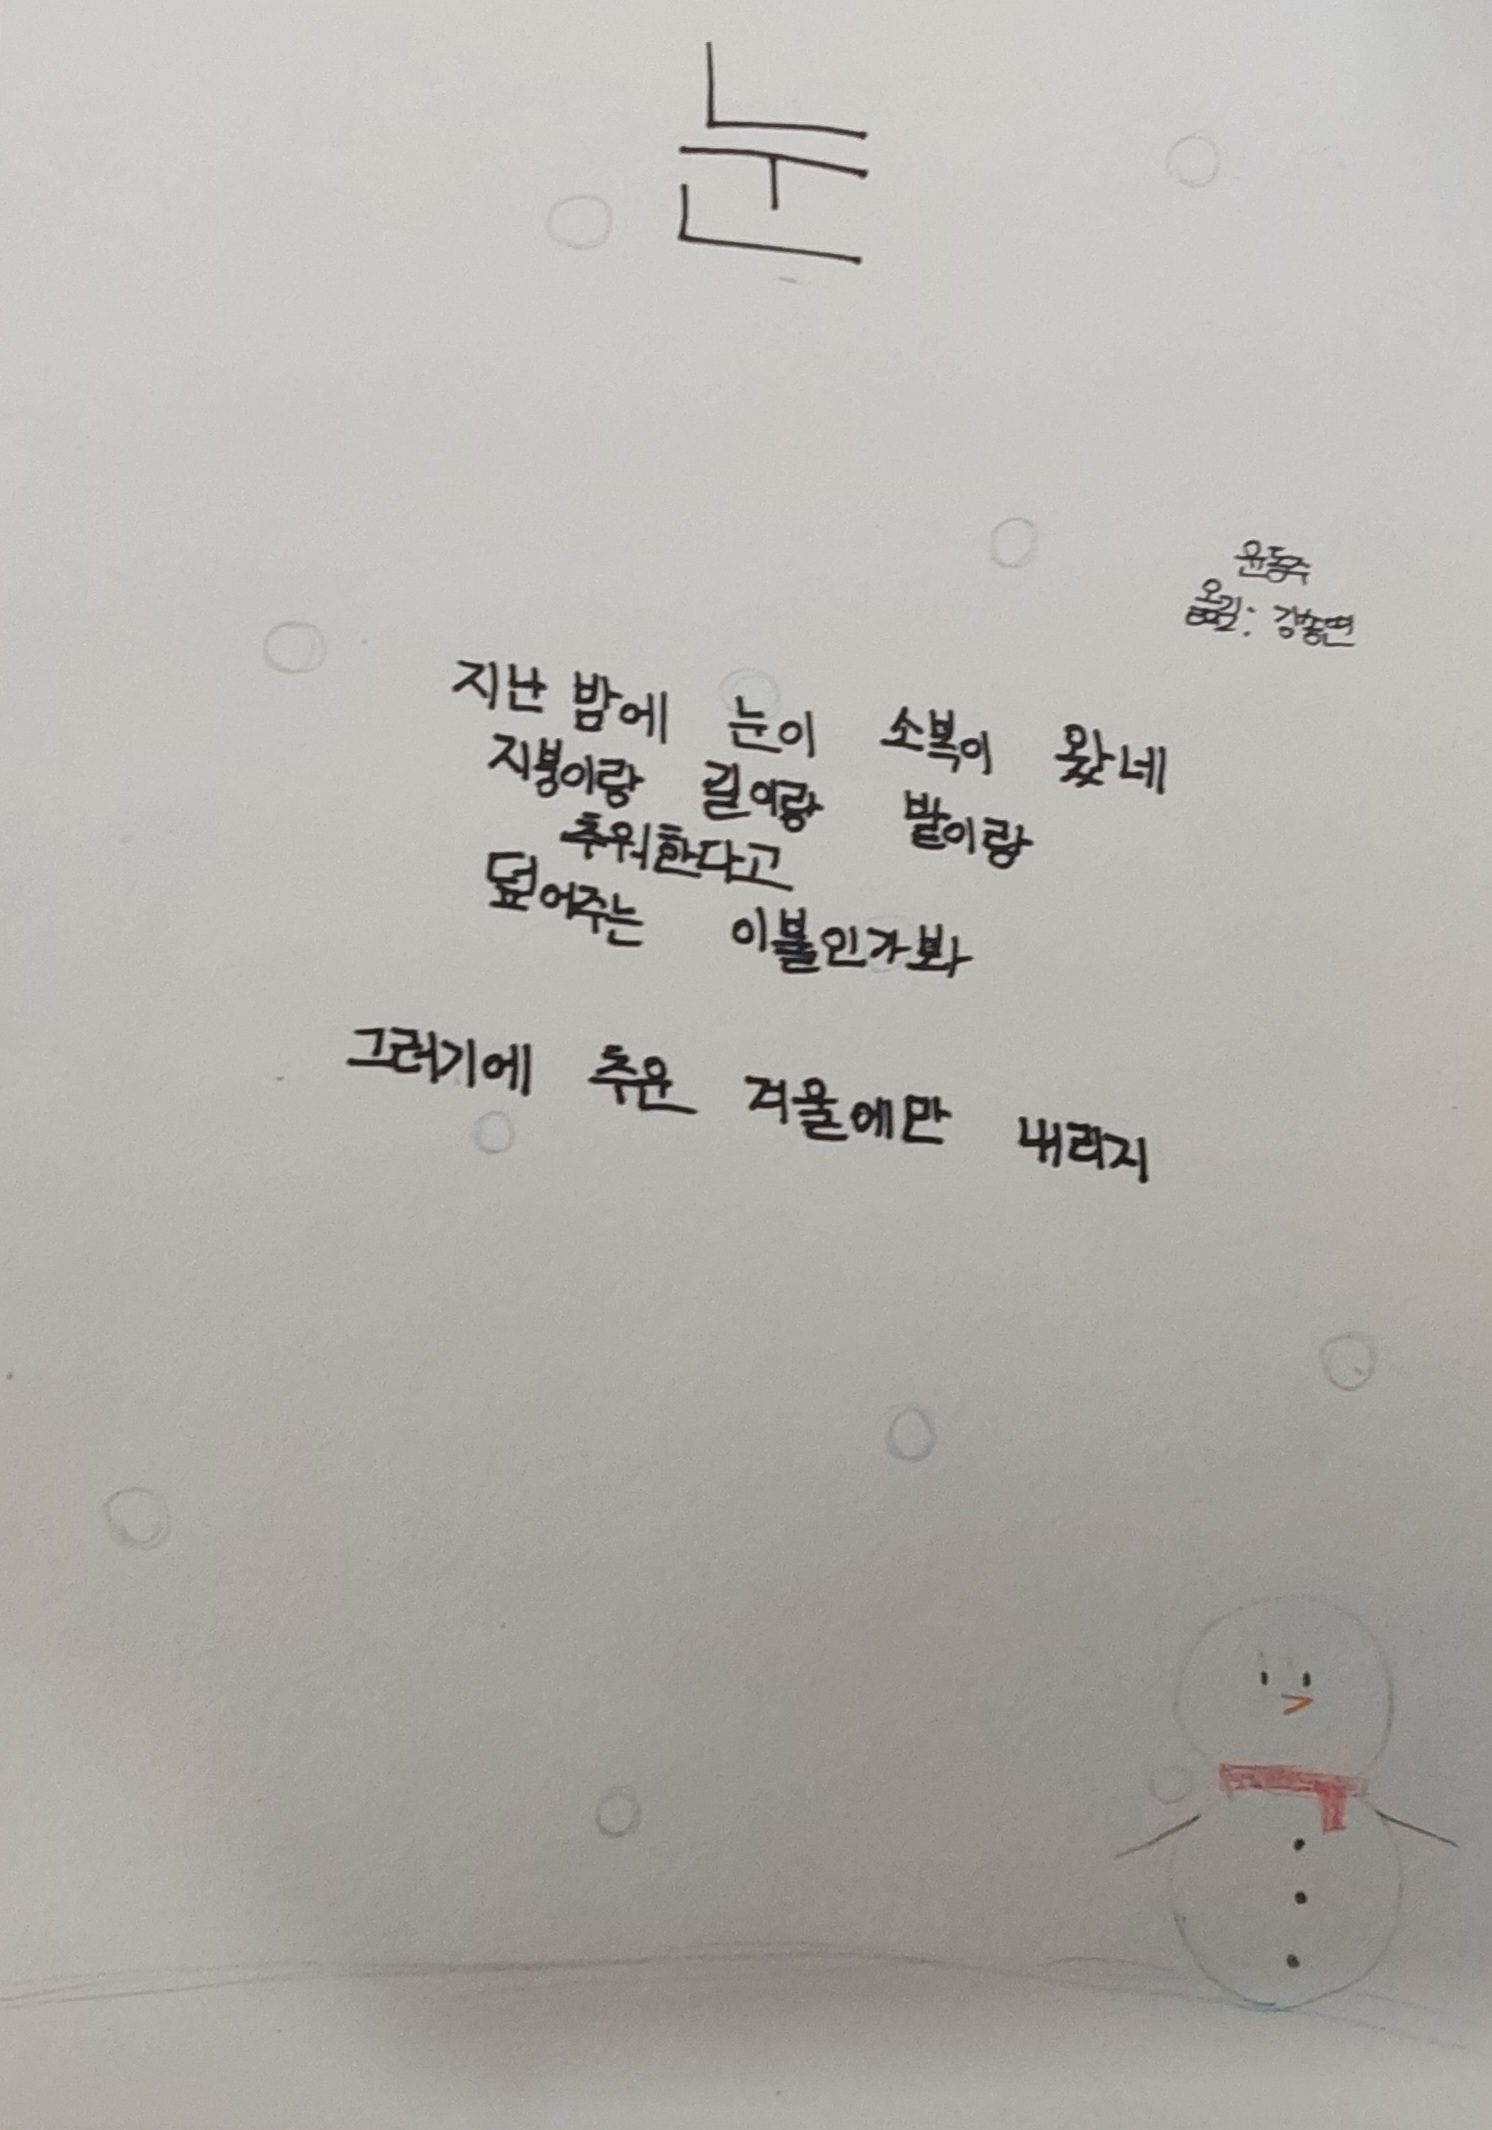 눈
윤동주
옮김: 강송연
지난 밤에 눈이 소복이 왔네
지붕이랑 길이랑 밭이랑
추워한다고
덮어주는 이불인가봐
그러기에 추운 겨울에만 내리지